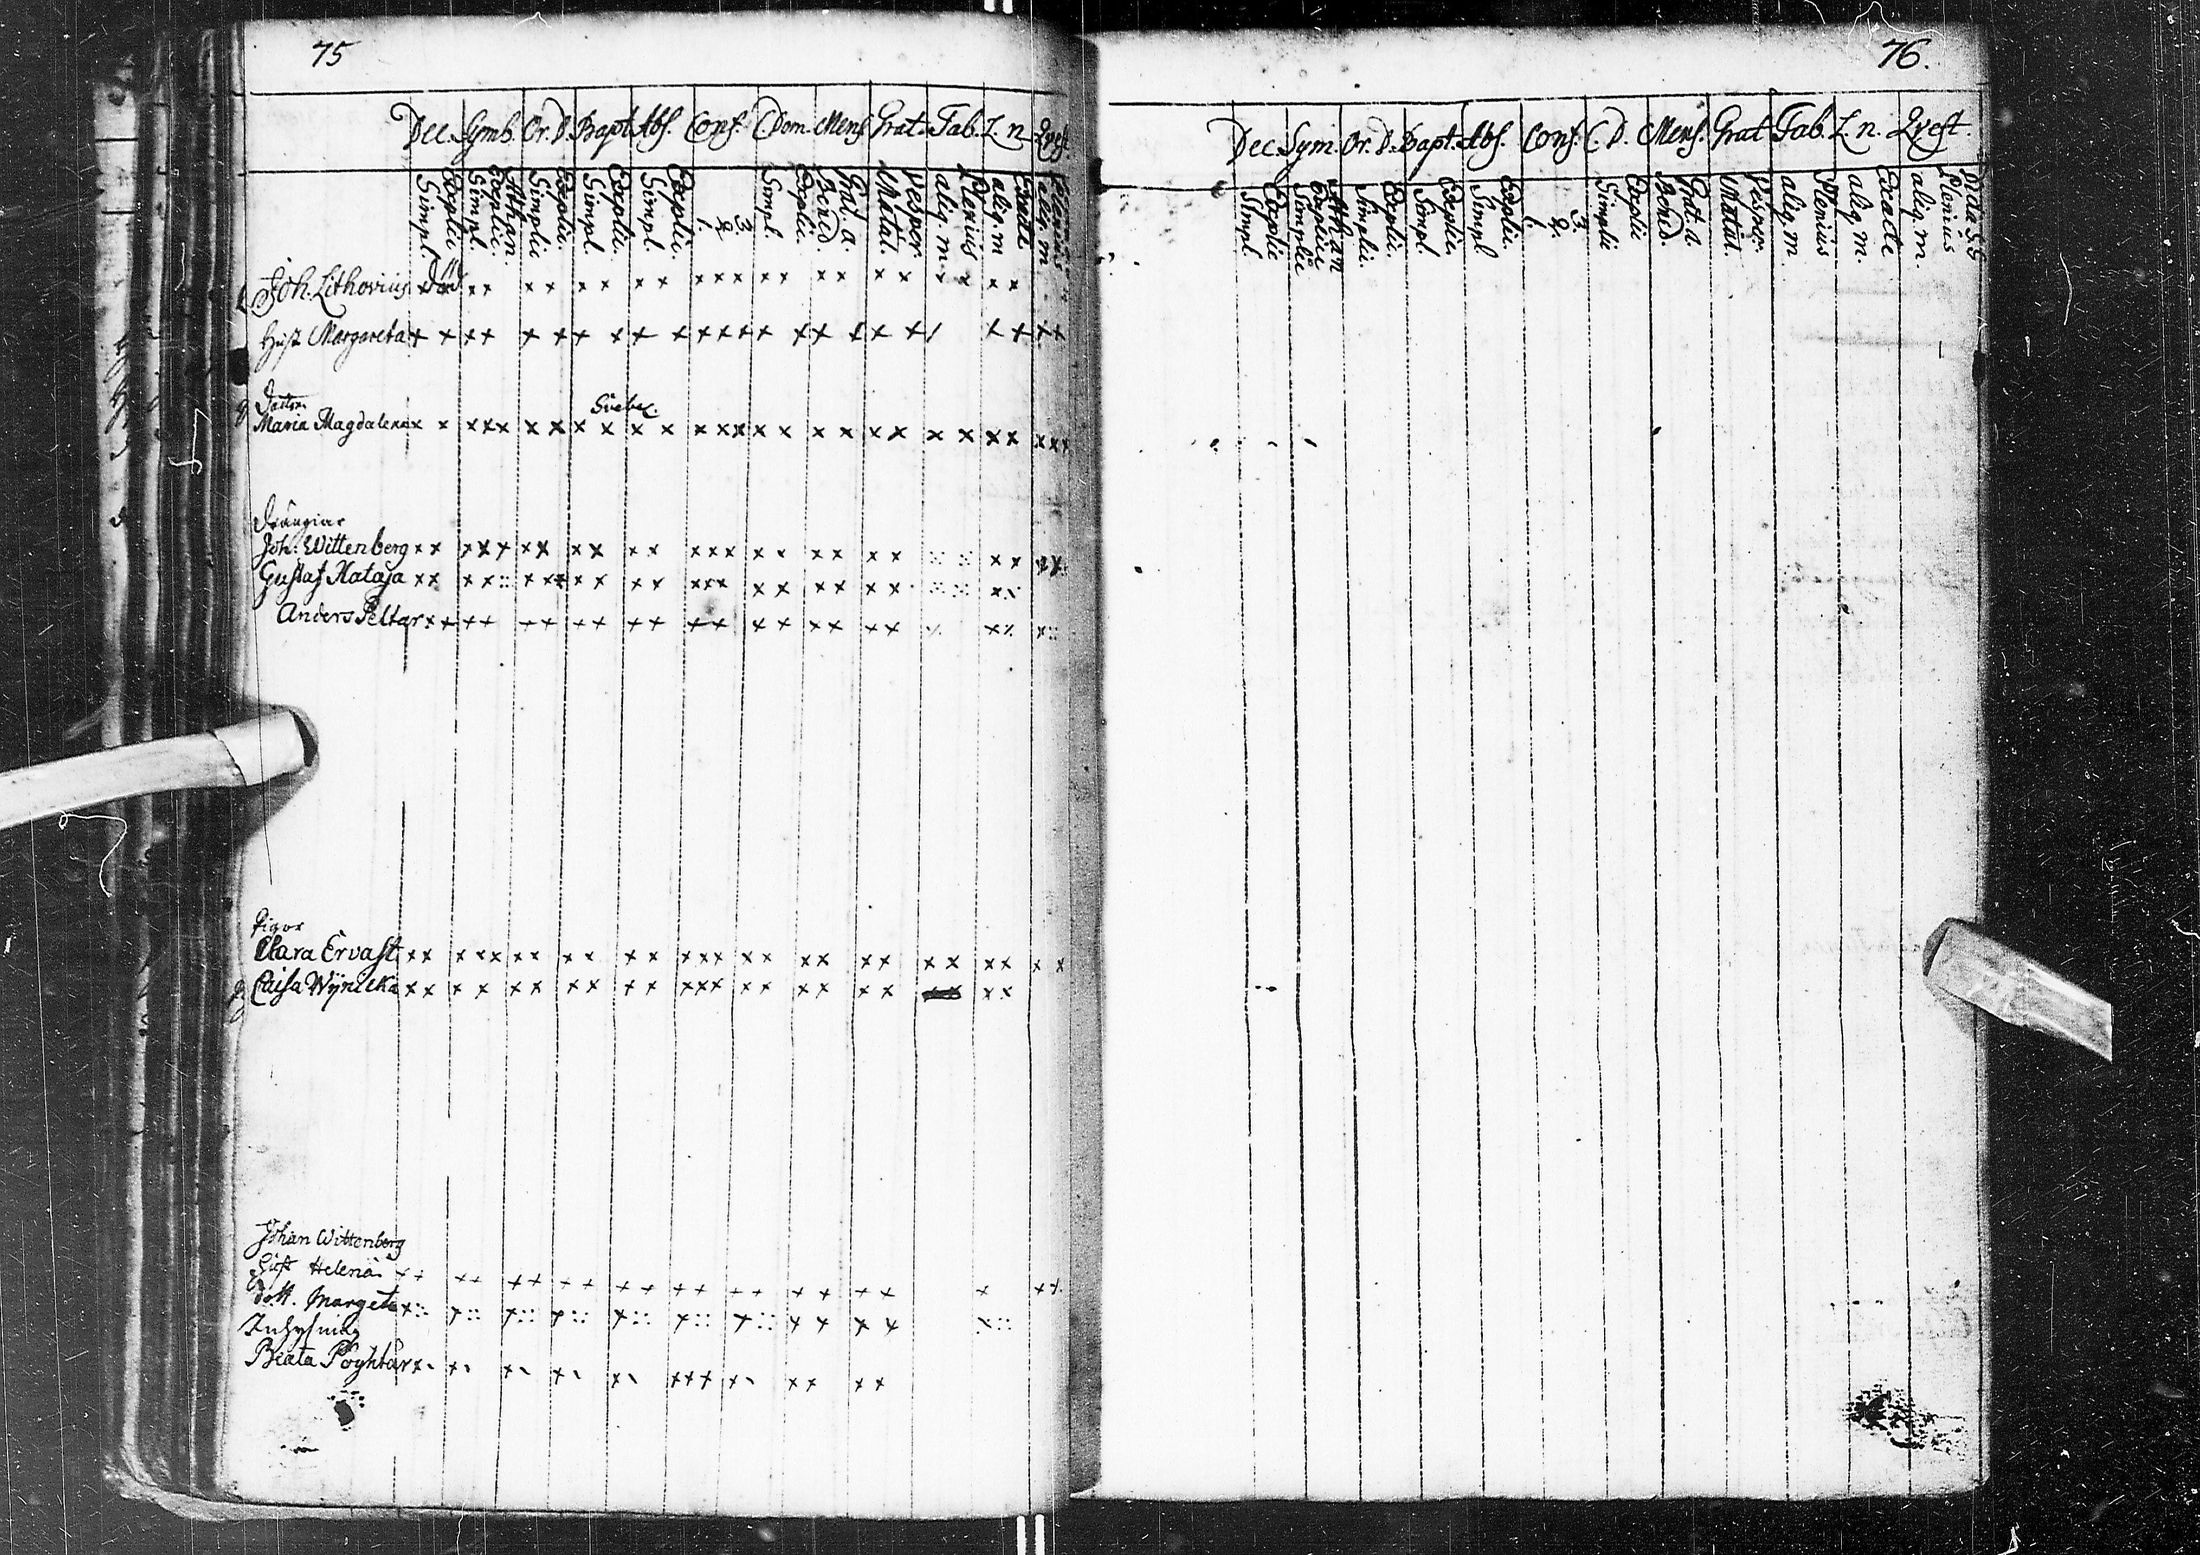 75
Dec. Symb. Or. D. Bapt. Abs. Conf. C. Dom. Mens. Grat. Tab. L. n. Qvest.
Simpl. Explic. Simpl. Explic. Athan. Simplic. Explic. Simpl. Explic. Simpl. Explic. 1. 2. 3. Simpl. Explic. Bened. Grat. a. Matut. Vesper. aliq. m. Plenius aliq. m Exacte aliq. m Plenius
Joh. Lithovius Död
Hust. Margareta
Dotter
Maria Magdalena
Drängiar
Joh. Wittenberg
Gustaf Mataja
Anders Peltar
Pigor
Clara Ervast
Caisa Wÿrilckä
Johan Wittenberg
Hust Helena
Dott. Margeta
Beata Pöyhtär
76.
Dec. Sym. Or. D. Bapt. Abs. Conf. C. D. Mens. Grat Tab. L. n. Qvest.
Simpl. Explic Simplic Explic Athan Simplic. Explic. Simpl. Explic. Simpl Explic. 1. 2. 3. Simplic Explic Bened. Grat. a. Matut. Vesper. aliq. m. Plenius aliq. m. Exacte aliq. m. Plenius Dicta S.S